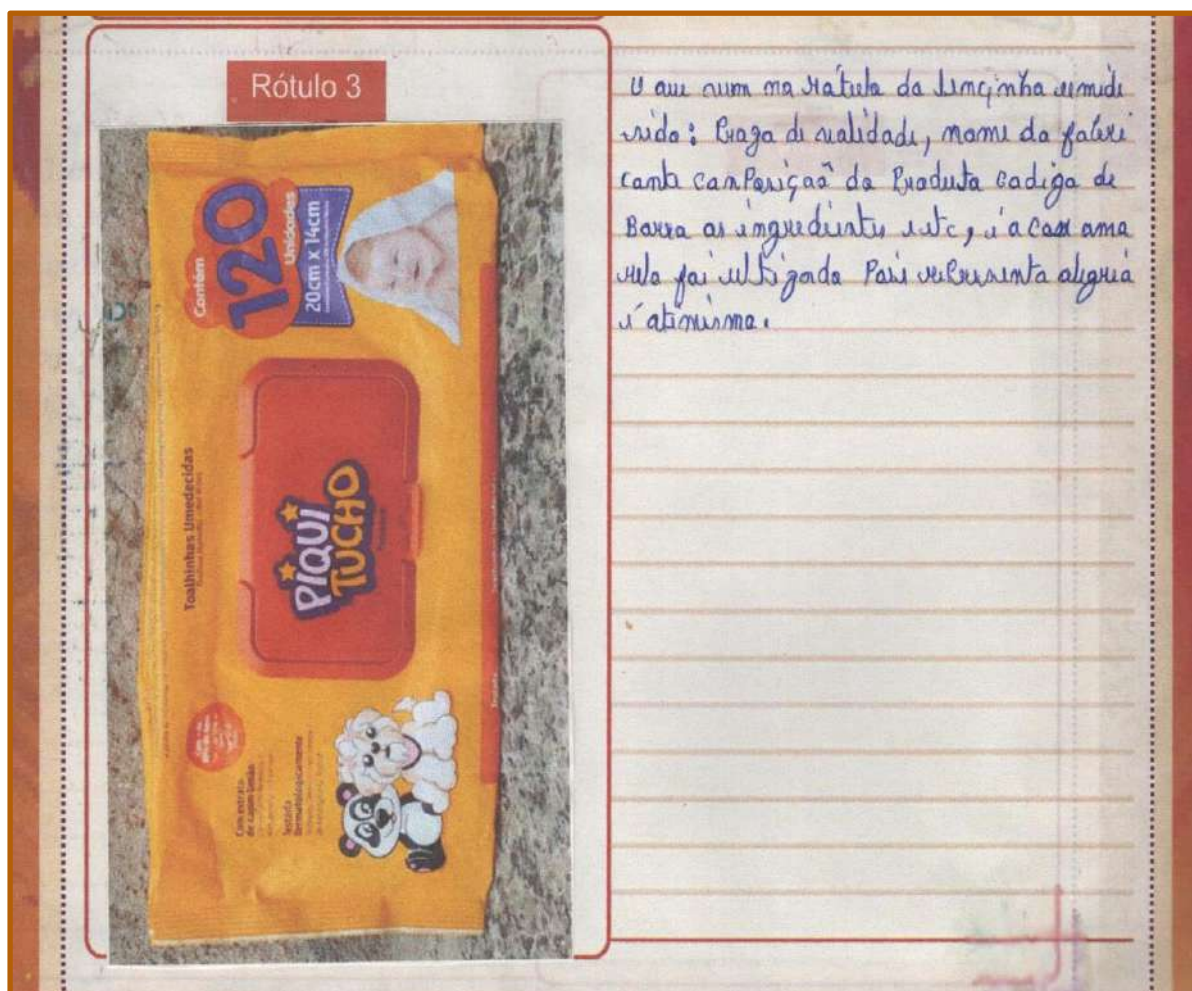 Rótulo 3
Contém
120
Unidades
20cm x 14cm
Toalhinhas Umedecidas
PIQUI
TUCHO
Com extrato
de capim-limão
Testado
Dermatologicamente
O que vem na rótulo do lencinho umide
sido: Prazo de validade, nome do fabri
cante comPosição do Produto codigo de
Barra os ingredientes etc, e a cor ama
rela foi utizada Pois rePresenta alegria
e otimismo.